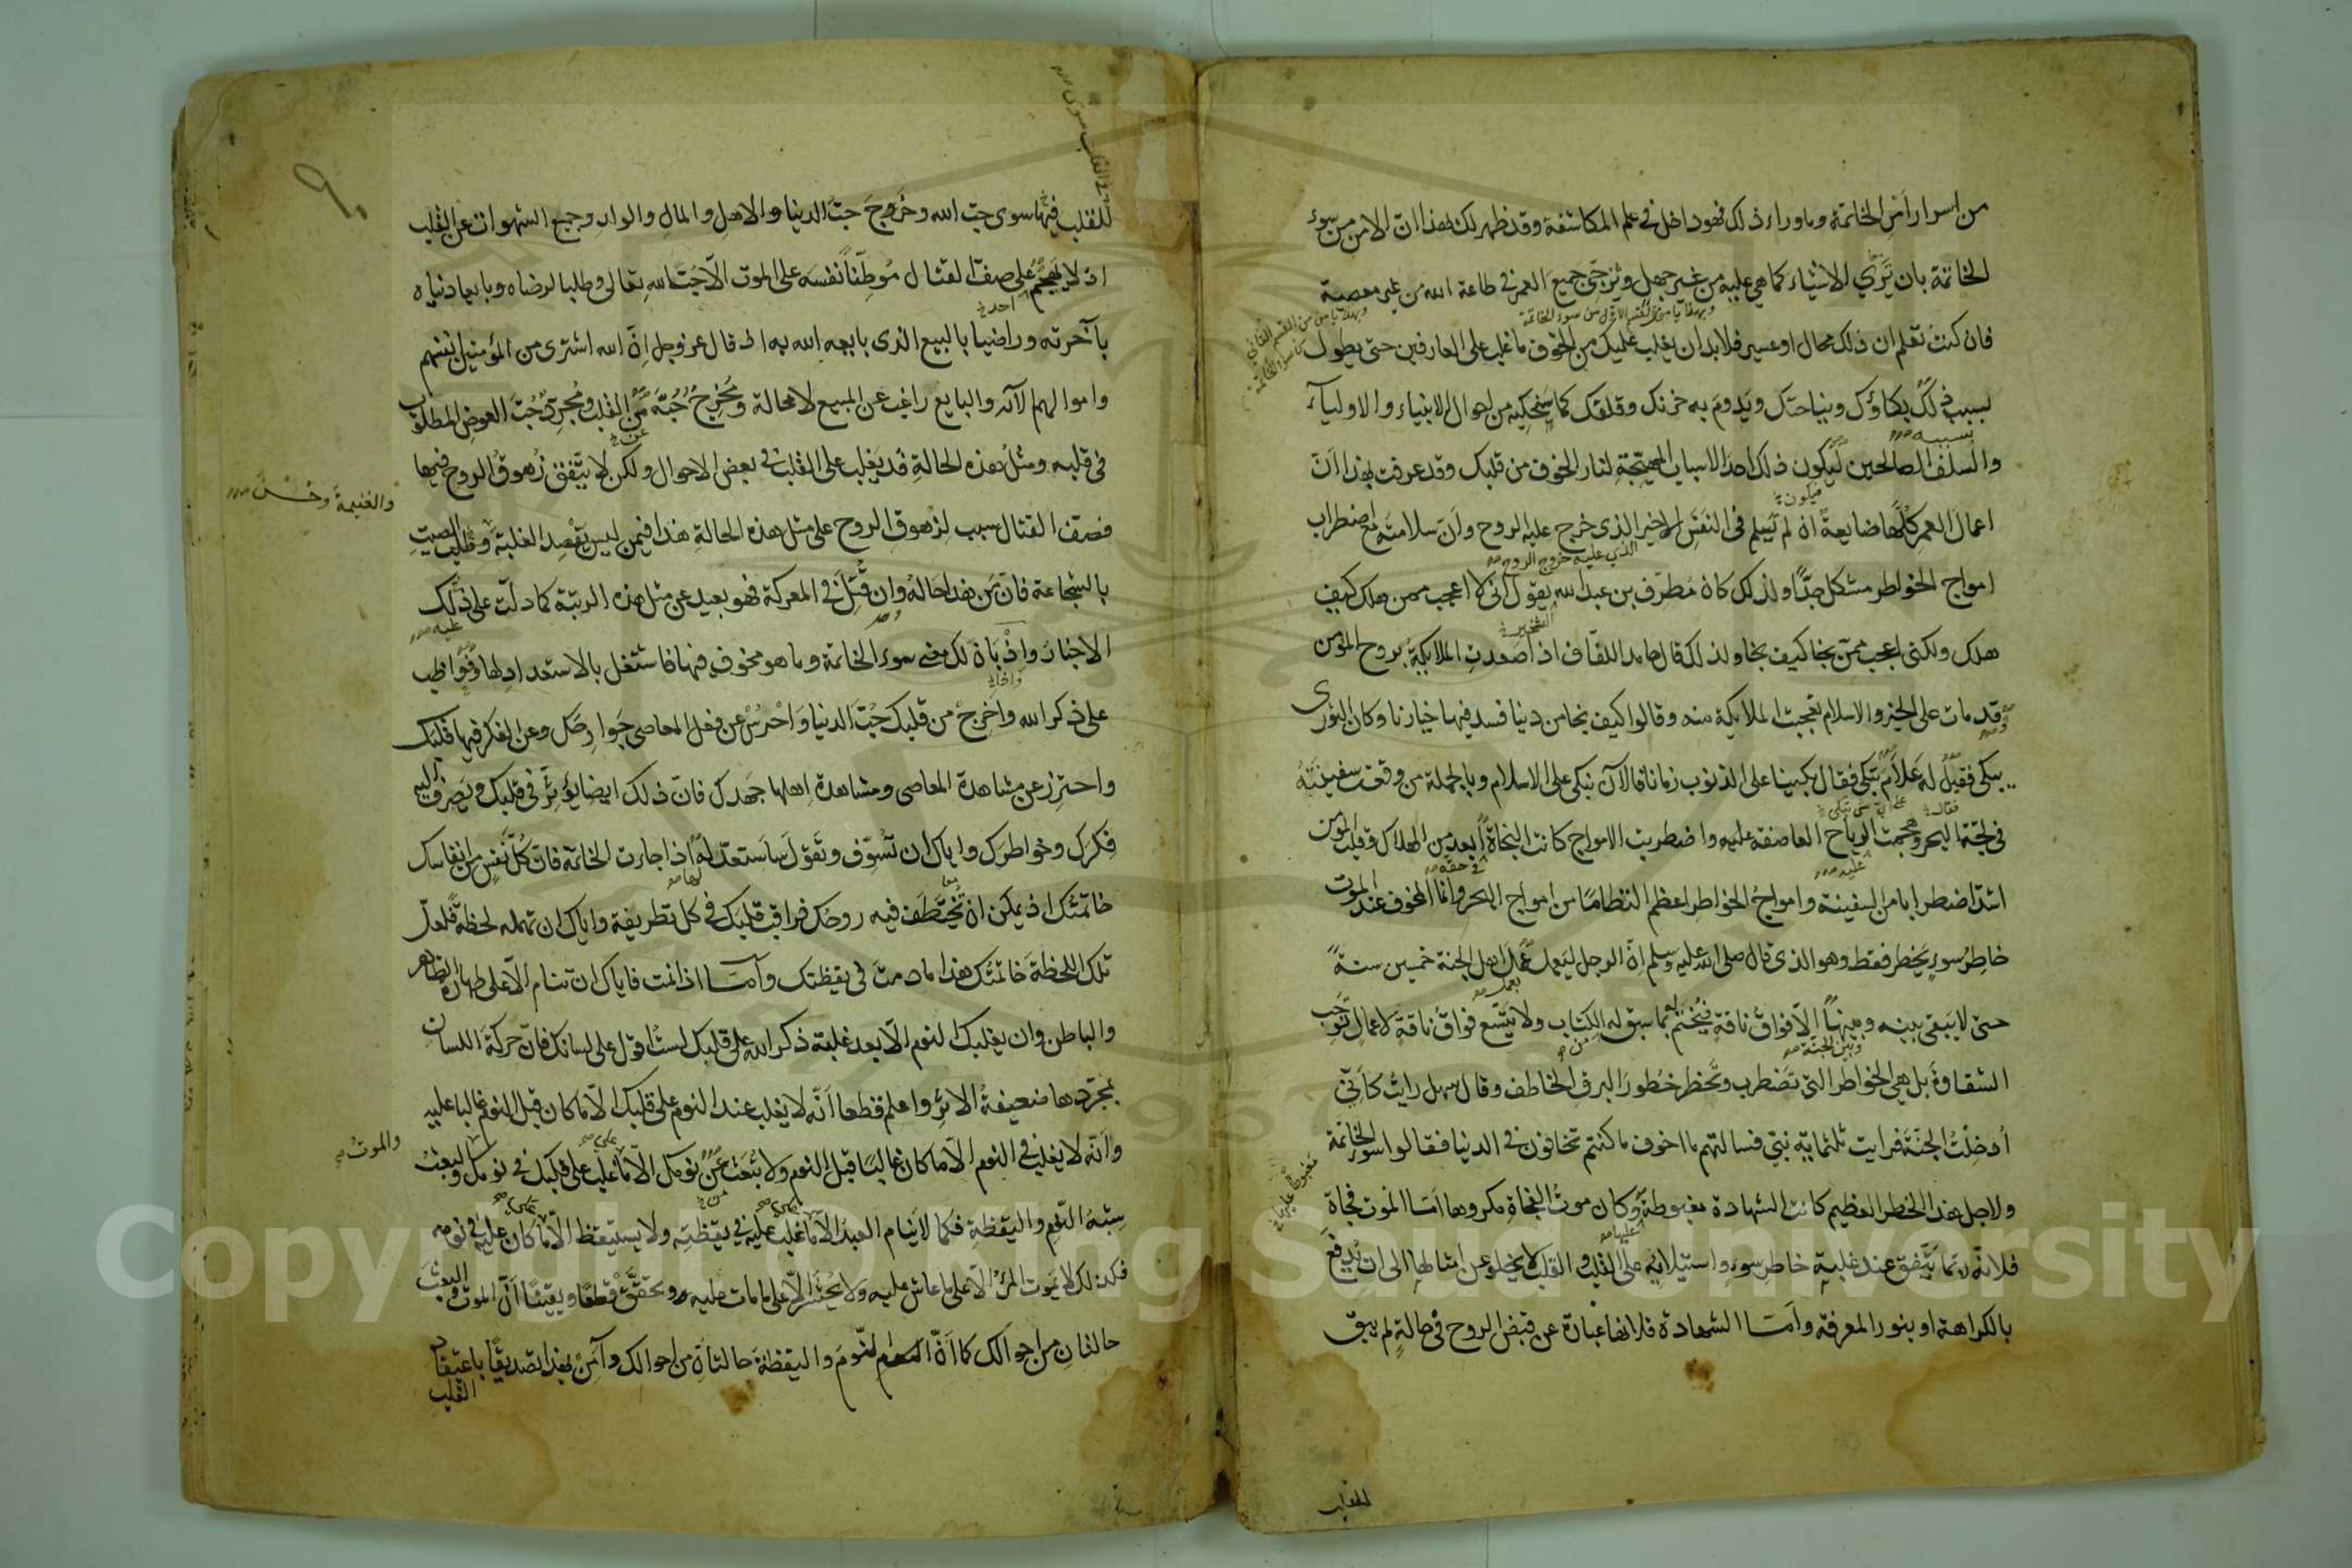 من اسرار امر الخاتمة وما وراء ذلك فهو داخل في علم المكاشفة وقد ظهر لك بهذا ان الامن من سوء
الخاتمة بان تري الاشياء كما هي عليه من غير جهل وتزجي جميع العمر في طاعة الله من غير معصية
فان كنت تعلم ان ذلك محال او عسير فلا بد ان يغلب عليك من الخوف ما غلب على العارفين حتى يطول
بسبب ذلك بكاؤك ونياحتك ويدوم به حزنك وقلقك كما سنحكيه من احوال الانبياء والاولياء
بسببه
والسلف الصالحين ليكون ذلك احد الاسباب المهيجة لنار الخوف من قلبك وقد عرفت بهذا ان
فيكون
اعمال العمر كلها ضايعة ان لم يسلم في النفس الاخير الذي خرج عليه الروح وان سلامته مع اضطراب
الذي عليه خروج الروح
امواج الخواطر مشكل جدا ولذلك كان مطرف بن عبد الله يقول اني لا اعجب ممن هلك كيف
الشخير
هلك ولكني اعجب ممن نجا كيف نجا ولذلك قال حامد اللفاف اذا صعدت الملايكة بروح المؤمن
وقد مات على الخير والاسلام تعجبت الملايكة منه وقالوا كيف نجا من دنيا فسد فيها خيارنا وكان الثوري
يبكي فقيل له علام تبكي فقال بكينا على الذنوب زمانا فالآن نبكي على الاسلام وبالجملة من وقعت سفينته
فقال
في لجة البحر وهجمت الرياح العاصفة عليه واضطربت الامواج كانت النجاة ابعد من الهلاك وقلب المؤمن
عليه
في حقه
اشد اضطرابا من السفينة وامواج الخواطر اعظم التطاما من امواج البحر وانما المخوف عند الموت
خاطر سوء يخطر فقط وهو الذي قال صلى الله عليه وسلم ان الرجل ليعمل عمل اهل الجنة خمسين سنة
بعمل
حتى لا يبقى بينه وبينها الا فواق ناقة فيختم له بما سبق له الكتاب ولا يتسع فواق ناقة لاعمال توجب
وبين الجنة
الشقاوة بل هي الخواطر التي تضطرب وتخطر خطور البرق الخاطف وقال سهل رايت كاني
ادخلت الجنة فرايت ثلثماية نبي فسالتهم ما اخوف ما كنتم تخافون في الدنيا فقالوا سوء الخاتمة
ولاجل هذا الخطر العظيم كانت الشهادة مغبوطة وكان موت الفجاة مكروها اما الموت فجاة
مغبوطا عليها
عليها
فلانه ربما يتفق عند غلبة خاطر سوء واستيلائه على القلب والقلب لا يخلو عن امثالها الى ان يدفع
بالكراهة او بنور المعرفة واما الشهادة فلانها عبارة عن قبض الروح في حالة لم يبق
للقلب
في القلب سوى
للقلب فيها سوى حب الله وخروج حب الدنيا والاهل والمال والولد وجميع الشهوات عن القلب
اذ لا يهجم على صف القتال موطنا نفسه على الموت الا حبا لله تعالى وطلبا لرضاه وبايعا دنياه
احد
بآخرته وراضيا بالبيع الذي بايعه الله به اذ قال عز وجل ان الله اشترى من المؤمنين انفسهم
واموالهم الآية والبايع راغب عن المبيع لا محالة ومخرج حبه من القلب ومجري حب العوض المطلوب
عن
في قلبه ومثل هذه الحالة قد يغلب على القلب في بعض الاحوال ولكن لا يتفق زهوق الروح فيها
والغنيمة وحسن
فصف القتال سبب لزهوق الروح على مثل هذه الحالة هذا فيمن ليس يقصد الغلبة وطلب الصيت
بالشجاعة فان من هذا حاله وان قتل في المعركة فهو بعيد عن مثل هذه الرتبة كما دلت على ذلك
عليه
الاخبار واذ بان لك معنى سوء الخاتمة وما هو مخوف فيها فاشتغل بالاستعداد لها وواظب
على ذكر الله واخرج من قلبك حب الدنيا واحرس عن فعل المعاصي جوارحك وعن الفكر فيها قلبك
واحترز عن مشاهدة المعاصي ومشاهدة اهلها جهدك فان ذلك ايضا يؤثر في قلبك ويصرف اليه
فكرك وخواطرك واياك ان تسوف وتقول ساستعد له اذا جاءت الخاتمة فان كل نفس من انفاسك
لها
خاتمتك اذ يمكن ان تختطف فيه روحك فراقب قلبك في كل تطريفة واياك ان تهمله لحظة فلعل
تلك اللحظة خاتمتك هذا ما دمت في يقظتك واما اذا نمت فاياك ان تنام الا على طهارة الظاهر
والباطن وان يغلبك النوم الا بعد غلبة ذكر الله على قلبك لست اقول على لسانك فان حركة اللسان
بمجردها ضعيفة الاثر واعلم قطعا انه لا يغلب عند النوم على قلبك الا ما كان قبل النوم غالبا عليه
والموت
وانه لا يغلب في النوم الا ما كان غالبا قبل النوم ولا تبعث عن نومك الا ما غلب على قلبك في نومك والبعث
شبه النوم واليقظة فكما لا ينام العبد الا ما غلب عليه في يقظته ولا يستيقظ الا ما كان عليه في نومه
فكذلك لا يموت المرء الا على ما عاش عليه ولا يحشر الا على ما مات عليه وتحقق قطعا ويقينا ان الموت والبعث
حالتان من احوالك كما ان النوم واليقظة حالتان من احوالك وآمن بهذا تصديقا باعتقاد
القلب